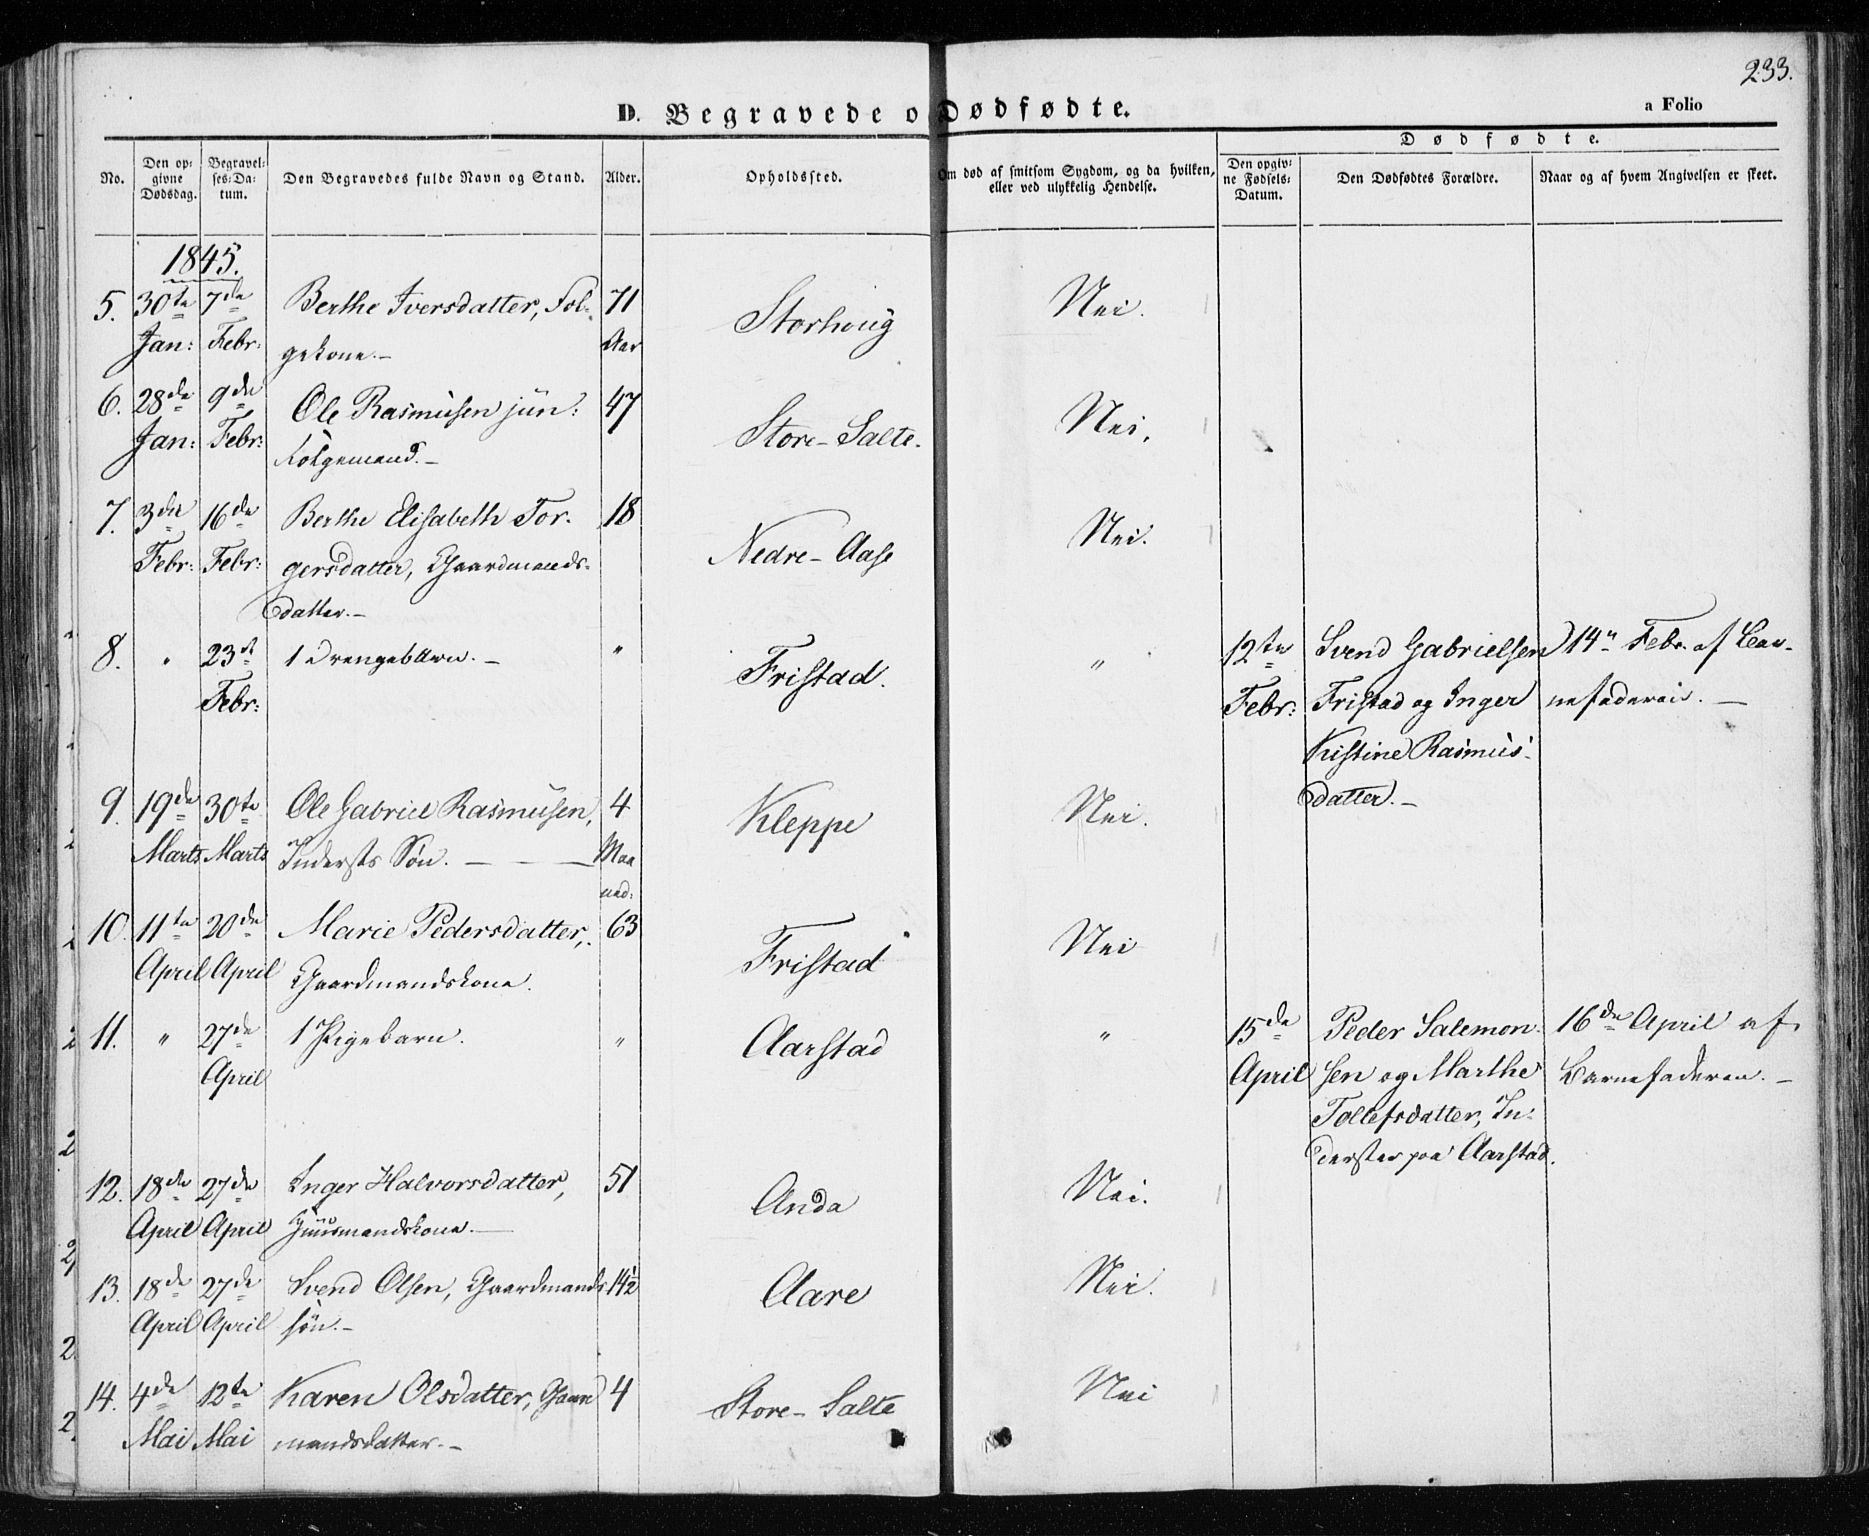 233.
D. Begravede o Dødfødte.
a Folio
No.
Den op:
givne
Dødsdag.
Begravel:
ses:Da:
tum.
Den Begravedes fulde Navn og Stand.
Alder.
Opholdssted.
Om død af smitsom Sygdom, og da hvilken,
eller ved ulykkelig Hendelse.
Dødfødte.
Den opgiv:
ne Fødsels:
Datum.
Den Dødfødtes Forældre.
Naar og af hvem Angivelsen er skeet.
1845.
5. 30te 7de Berthe Iversdatter, Fol- 71 Storhoug Nei.
Jan: Febr: gekone.- Aar
6. 28de 9de Ole Rasmusen jun: 47 Store-Salte. Nei.
Jan: Febr: Folgemand.-
7. 3die 16de Berthe Elisabeth Tor- 18 Nedre-Aase Nei.
Febr: Febr: gersdatter, Gaardmands-
datter.-
8. " 23de 1 Drengebarn.- " Fristad. " 12te Svend Gabrielsen 14" Febr. af Bar-
Febr: Febr: Fristad og Inger nefaderen.-
Kristine Rasmus-
datter.-
9. 19de 30te Ole Gabriel Rasmusen, 4 Kleppe Nei.
Marts Marts Indersts Søn.- Maa
ned:
10. 11te 20de Marie Pedersdatter, 63 Fristad Nei
April April Gaardmandskone.
11. " 27de 1 Pigebarn. " Aarstad " 15de Peder Salemon- 16de April af
April April sen og Marthe Barnefaderen.-
Tollefsdatter, In-
derster paa Aarstad.
12. 18de 27de Inger Halvorsdatter, 51 Anda Nei.
April April Huusmandskone.-
13. 18de 27de Svend Olsen, Gaardmands 14½ Aare Nei.
April April søn.-
14. 4de 12te Karen Olsdatter, Gaard 4 Store-Salte Nei
Mai Mai mandsdatter.-